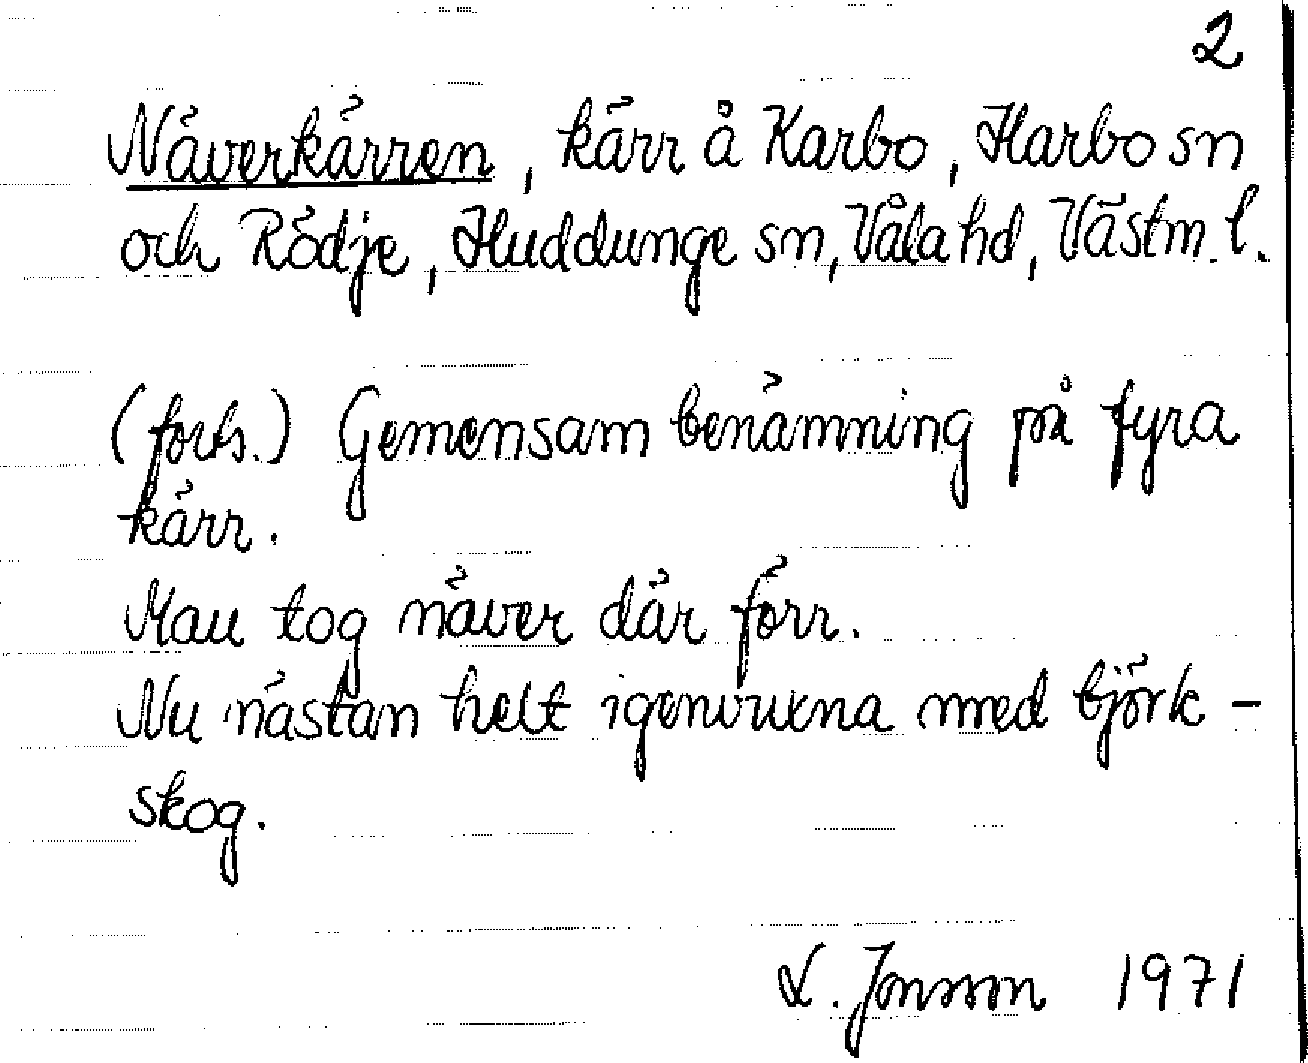 2
Näverkärren, kärr å Karbo, Harbo sn
och Rödje, Huddunge sn, Våla hd, Västm. l.
(forts.) Gemensam benämning på fyra
kärr.
Man tog näver där förr.
Nu nästan helt igenvuxna med björk-
skog.
L. Jonsson 1971